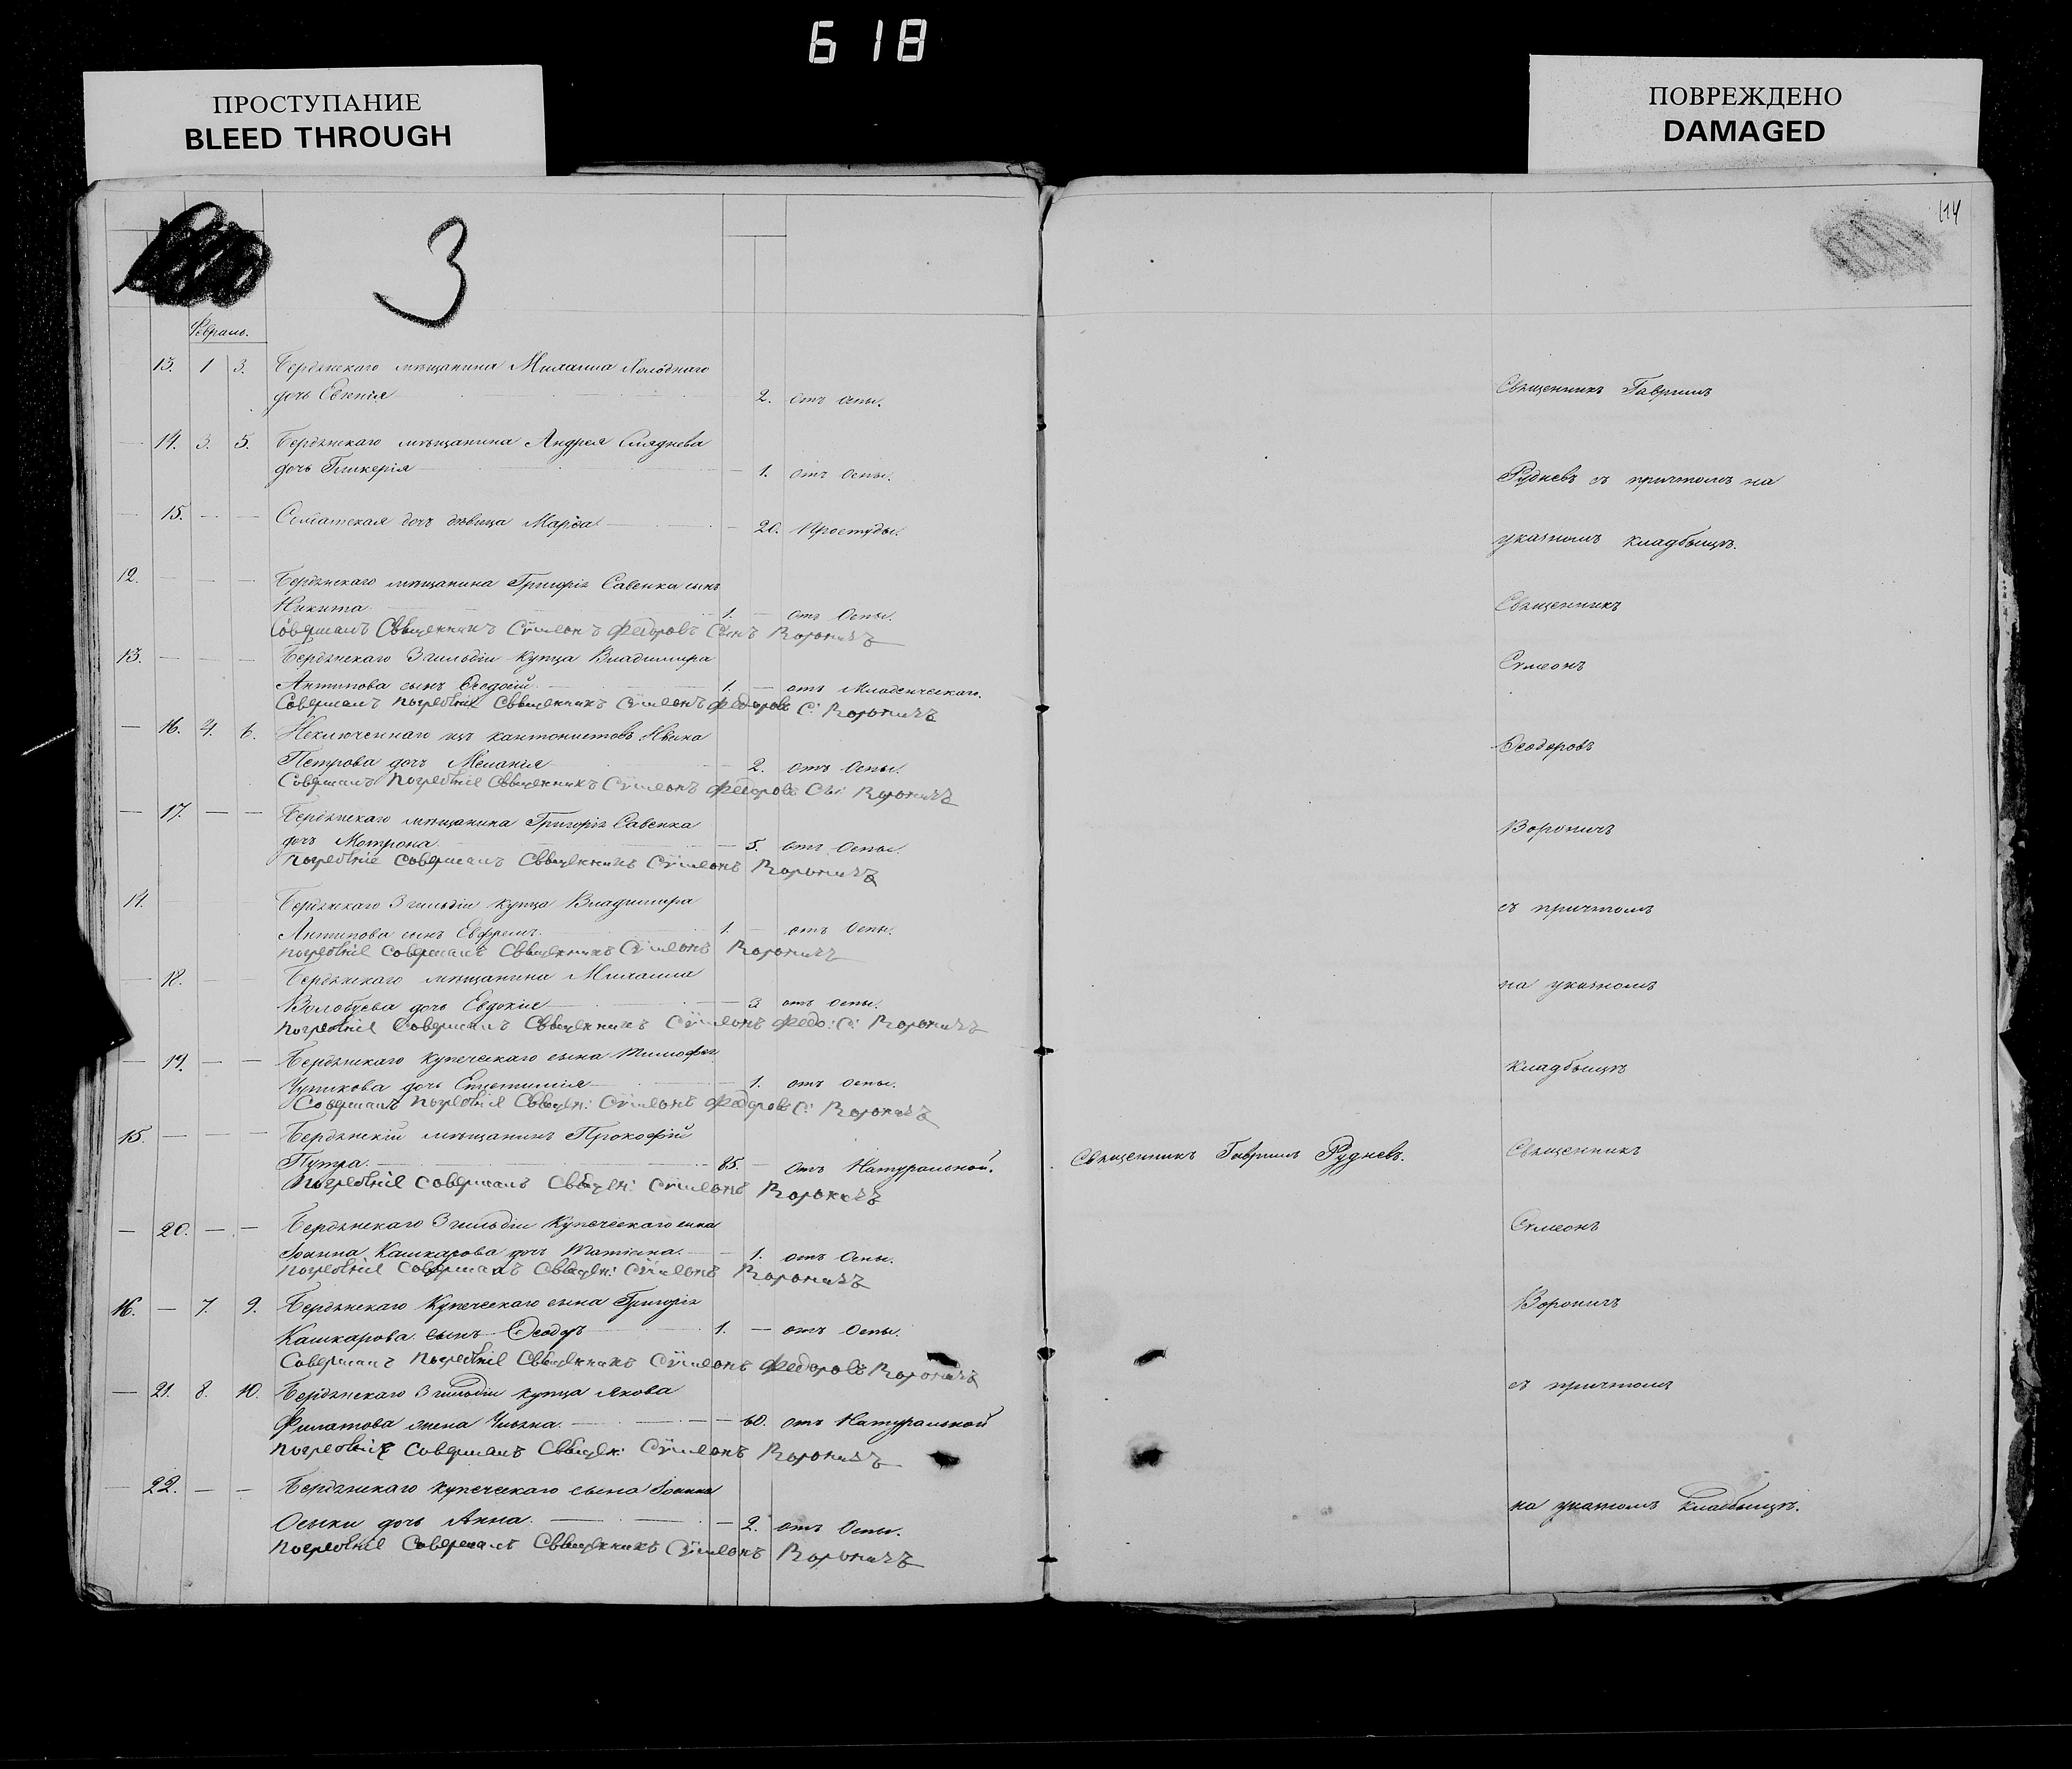 618
ПРОСТУПАНИЕ
BLEED THROUGH
ПОВРЕЖДЕНО
DAMAGED
3
114
Февраль.
13. 1 3. Бердянскаго мѣщанина Михаила Холоднаго
дочь Евгенія 2. отъ оспы.
14. 3. 5. Бердянскаго мѣщанина Андрея
дочь Гликерія 1. отъ Оспы.
15. Солдатская дочь дѣвица Марѳа 20. Простуды.
12. Бердянскаго мѣщанина Григорія Савенка сынъ
Никита 1. отъ Оспы.
Совершалъ Священникъ Сѵмеонъ Федоровъ Сынъ Вороничъ
13. Бердянскаго 3 гильдіи купца Владимира
Антипова сынъ Ѳедосій 1. отъ Младенческаго.
Совершалъ погребѣніе Священникъ Сѵмеонъ Федоровъ С: Вороничъ
16. 4. 6. Исключеннаго изъ кантонистовъ Ивана
Петрова дочь Меланія 2. отъ Оспы.
Совершалъ погребѣніе Священникъ Сѵмеонъ Федоровъ Сы: Вороничъ
17. Бердянскаго мѣщанина Григорія Савенка
дочь Мотрона 5. отъ Оспы.
погребѣніе совершалъ Священникъ Сѵмеонъ Вороничъ
14. Бердянскаго 3 гильдіи купца Владимира
Антипова сынъ Евфремъ 1. отъ Оспы.
погребѣніе совершалъ Священникъ Сѵмеонъ Вороничъ
18. Бердянскаго мѣщанина Михаила
Волобуева дочь Евдокія 3 отъ оспы.
погребѣніе Совершалъ Священникъ Сѵмеонъ Федо: С: Вороничъ
19. Бердянскаго купеческаго сына Тимофея
Чупикова дочь 1. отъ оспы.
Совершалъ погребѣніе Священ: Сѵмеонъ Федоровъ С: Вороничъ
15. Бердянскій мѣщанинъ Прокофій
Путра 85. отъ Натуральной.
погребѣніе совершалъ Священ: Сѵмеонъ Вороничъ
20. Бердянскаго 3 гильдіи Купеческаго сына
Іоанна Кашкарова дочь Татіана. 1. отъ Оспы.
погребѣніе Совершалъ Священ: Сѵмеонъ Вороничъ
16. 7. 9. Бердянскаго Купеческаго сына Григорія
Кашкарова сынъ Ѳеодоръ 1. отъ Оспы.
Совершалъ погребѣніе Священникъ Сѵмеонъ Федоровъ Вороничъ
21. 8. 10. Бердянскаго 3 гильдіи купца Якова
Филатова жена Ульяна. 60. отъ Натуральной
погребѣніе совершалъ Священ: Сѵмеонъ Вороничъ
22. Бердянскаго купеческаго сына Іоанна
дочь Анна. 2. отъ Оспы.
погребѣніе Совершалъ Священникъ Сѵмеонъ Вороничъ
Священникъ Гавриилъ
Рудневъ съ причтомъ на
указномъ кладбищѣ.
Священникъ
Сѵмеонъ
Ѳеодоровъ
Вороничъ
съ причтомъ
на указномъ
кладбищѣ
Священникъ Гавриилъ Рудневъ.
Священникъ
Сѵмеонъ
Вороничъ
съ причтомъ
на указномъ кладбищѣ.